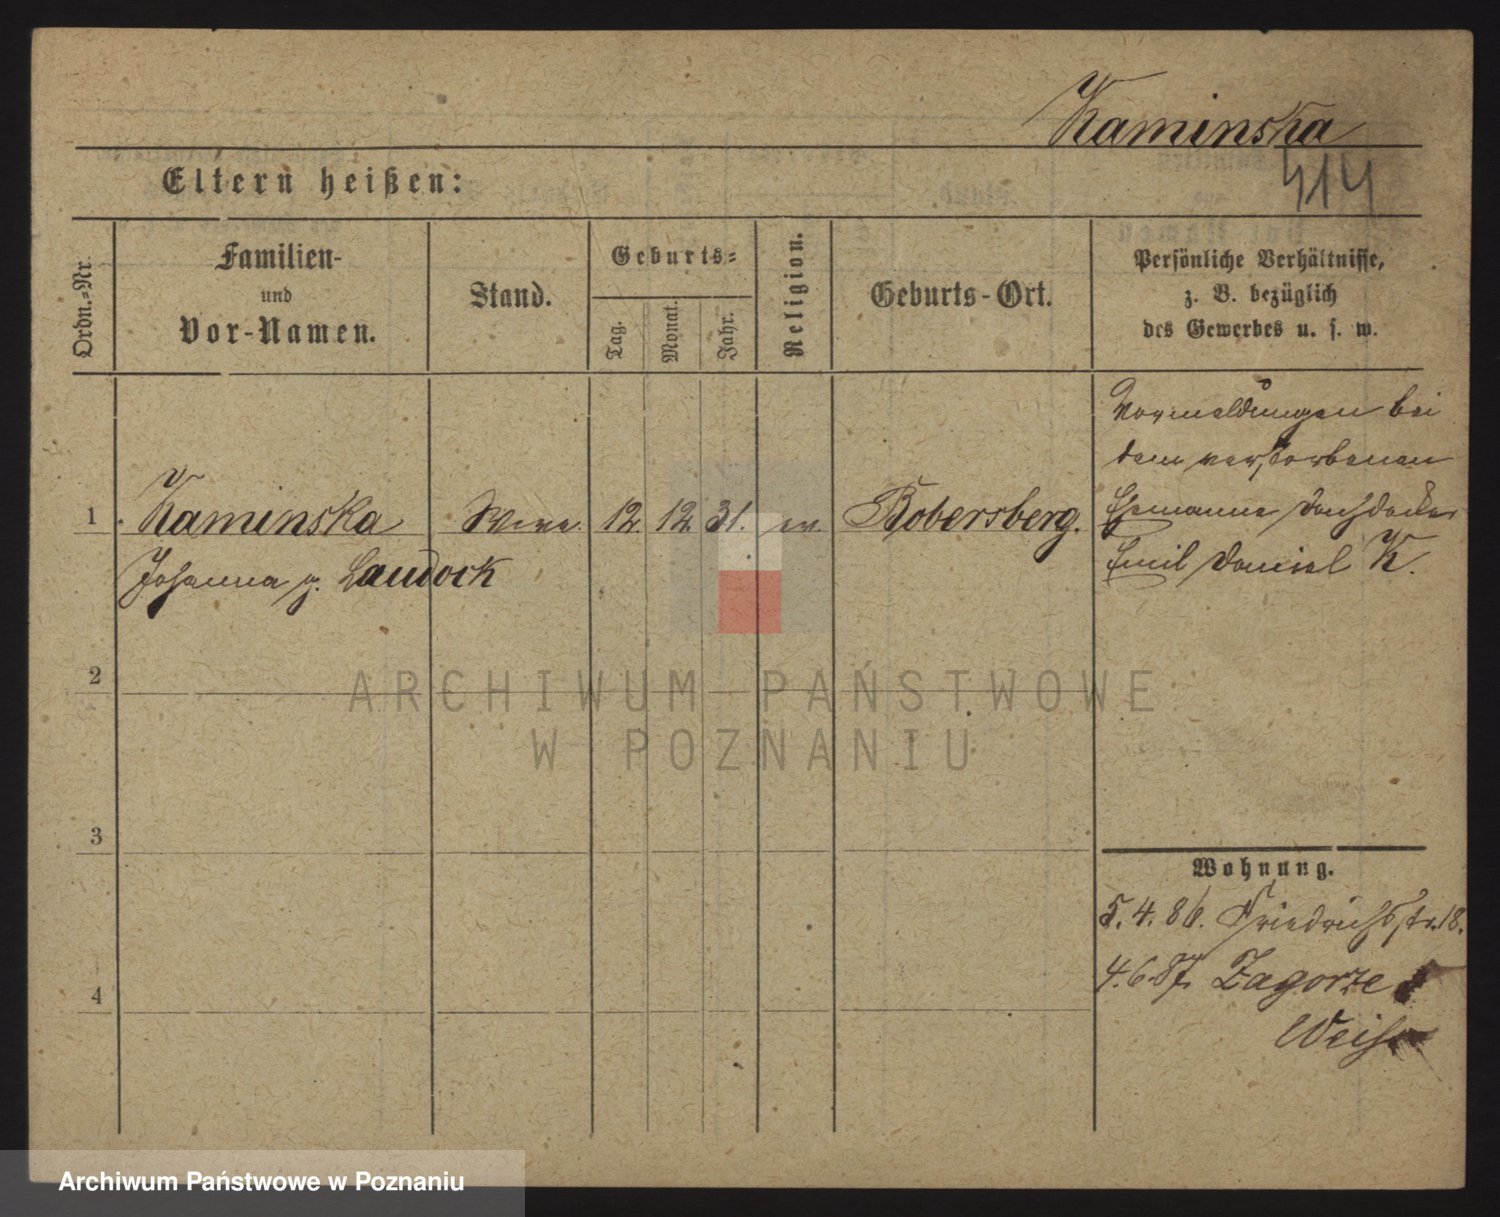 Kaminska
414
Eltern heißen:
Ordn.-Nr.
Familien-
und
Vor-Namen.
Stand.
Geburts-
Tag.
Monat.
Jahr.
Religion.
Geburts-Ort.
Persönliche Verhältnisse,
z. B. bezüglich
des Gewerbes u. s. w.
Vormeldungen bei
dem verstorbenen
Ehemanne Dachdecker
Emil Daniel K.
1 Kaminska Wwe. 12. 12. 31. ev. Bobersberg.
Johanna g. Laudock
2
3
4
Wohnung.
5.4.86. Friedrichsstr. 18.
4.6.87. Zagorze
ARCHIWUM PAŃSTWOWE
W POZNANIU
Archiwum Państwowe w Poznaniu